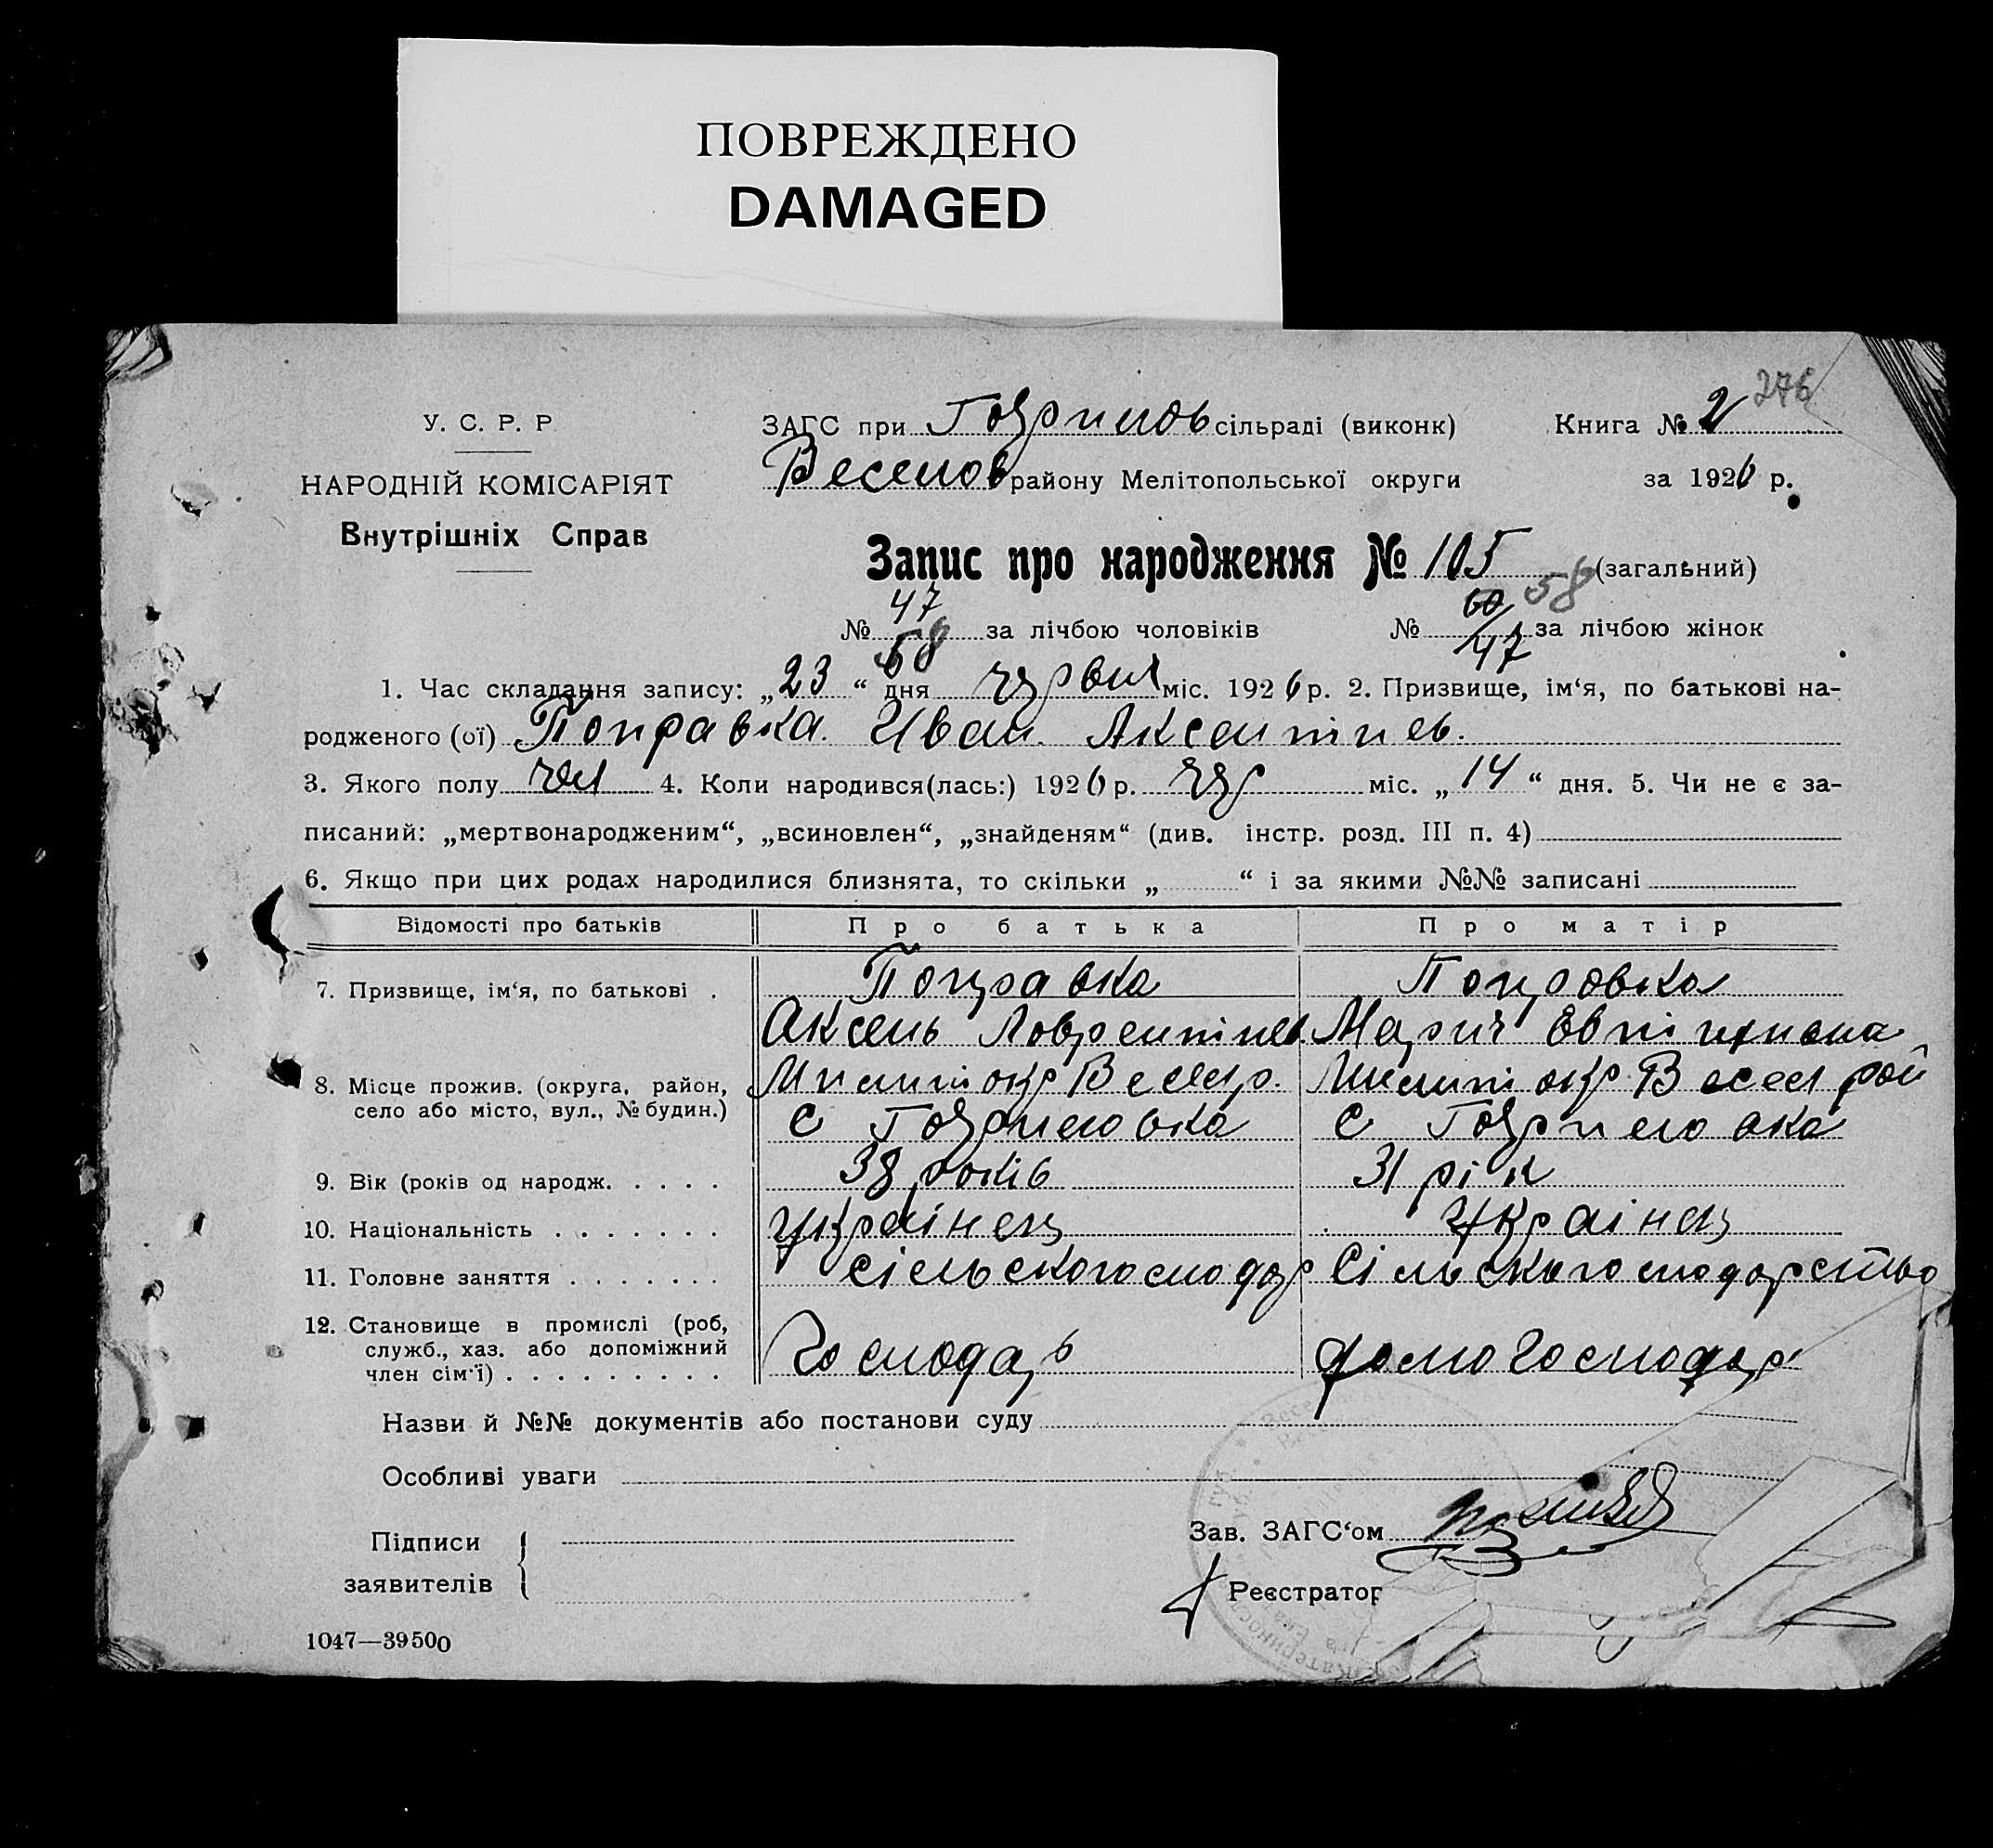 ПОВРЕЖДЕНО
DAMAGED
276
У. С. Р. Р
НАРОДНІЙ КОМІСАРІЯТ
Внутрішніх Справ
ЗАГС при Гаврилов сільраді (виконк)
Книга № 2
Веселов району Мелітопольської округи
за 1926 р.
Запис про народження № 105 58 (загальний)
47 60
№ 58 за лічбою чоловіків № 47 за лічбою жінок
1. Час складання запису: „23“ дня червня міс. 1926 р. 2. Призвище, ім‘я, по батькові на-
родженого (ої) Поправка Иван Аксентиев.
3. Якого полу чол 4. Коли народився(лась:) 1926 р. чер міс. „14“ дня. 5. Чи не є за-
писаний: „мертвонародженим“, „всиновлен“, „знайденям“ (див. інстр. розд. III п. 4)
6. Якщо при цих родах народилися близнята, то скільки „ “ і за якими №№ записані
Відомості про батьків Про батька Про матір
7. Призвище, ім‘я, по батькові . Поправка Поправка
Аксень Лаврентиев. Мария
8. Місце прожив. (округа, район, Милит окр Весел р. Милит окр Весел рай
село або місто, вул., № будин.) С Гавриловка С Гавриловка
9. Вік (років од народж. . . . . 38 років 31 рік
10. Національність . . . . . . . українец Українец
11. Головне заняття . . . . . . . сільськогосподар Сільськогосподарство
12. Становище в промислі (роб,
служб., хаз. або допоміжний
член сім‘ї) . . . . . . . . . Господарь домогосподар
Назви й №№ документів або постанови суду
Особливі уваги
Підписи
заявителів
Зав. ЗАГС‘ом
Реєстратор
1047—39500